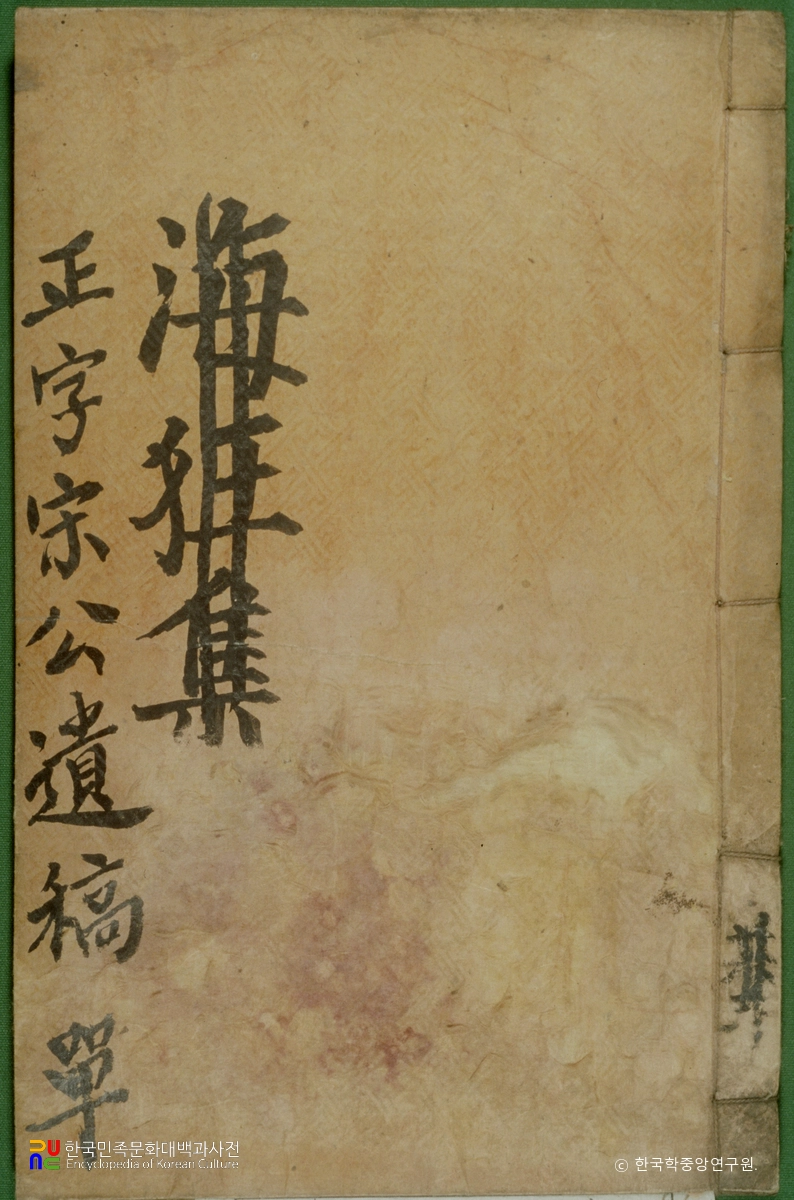 海狂集
正字宋公遺稿 單
한국민족문화대백과사전
Encyclopedia of Korean Culture
ⓒ 한국학중앙연구원.